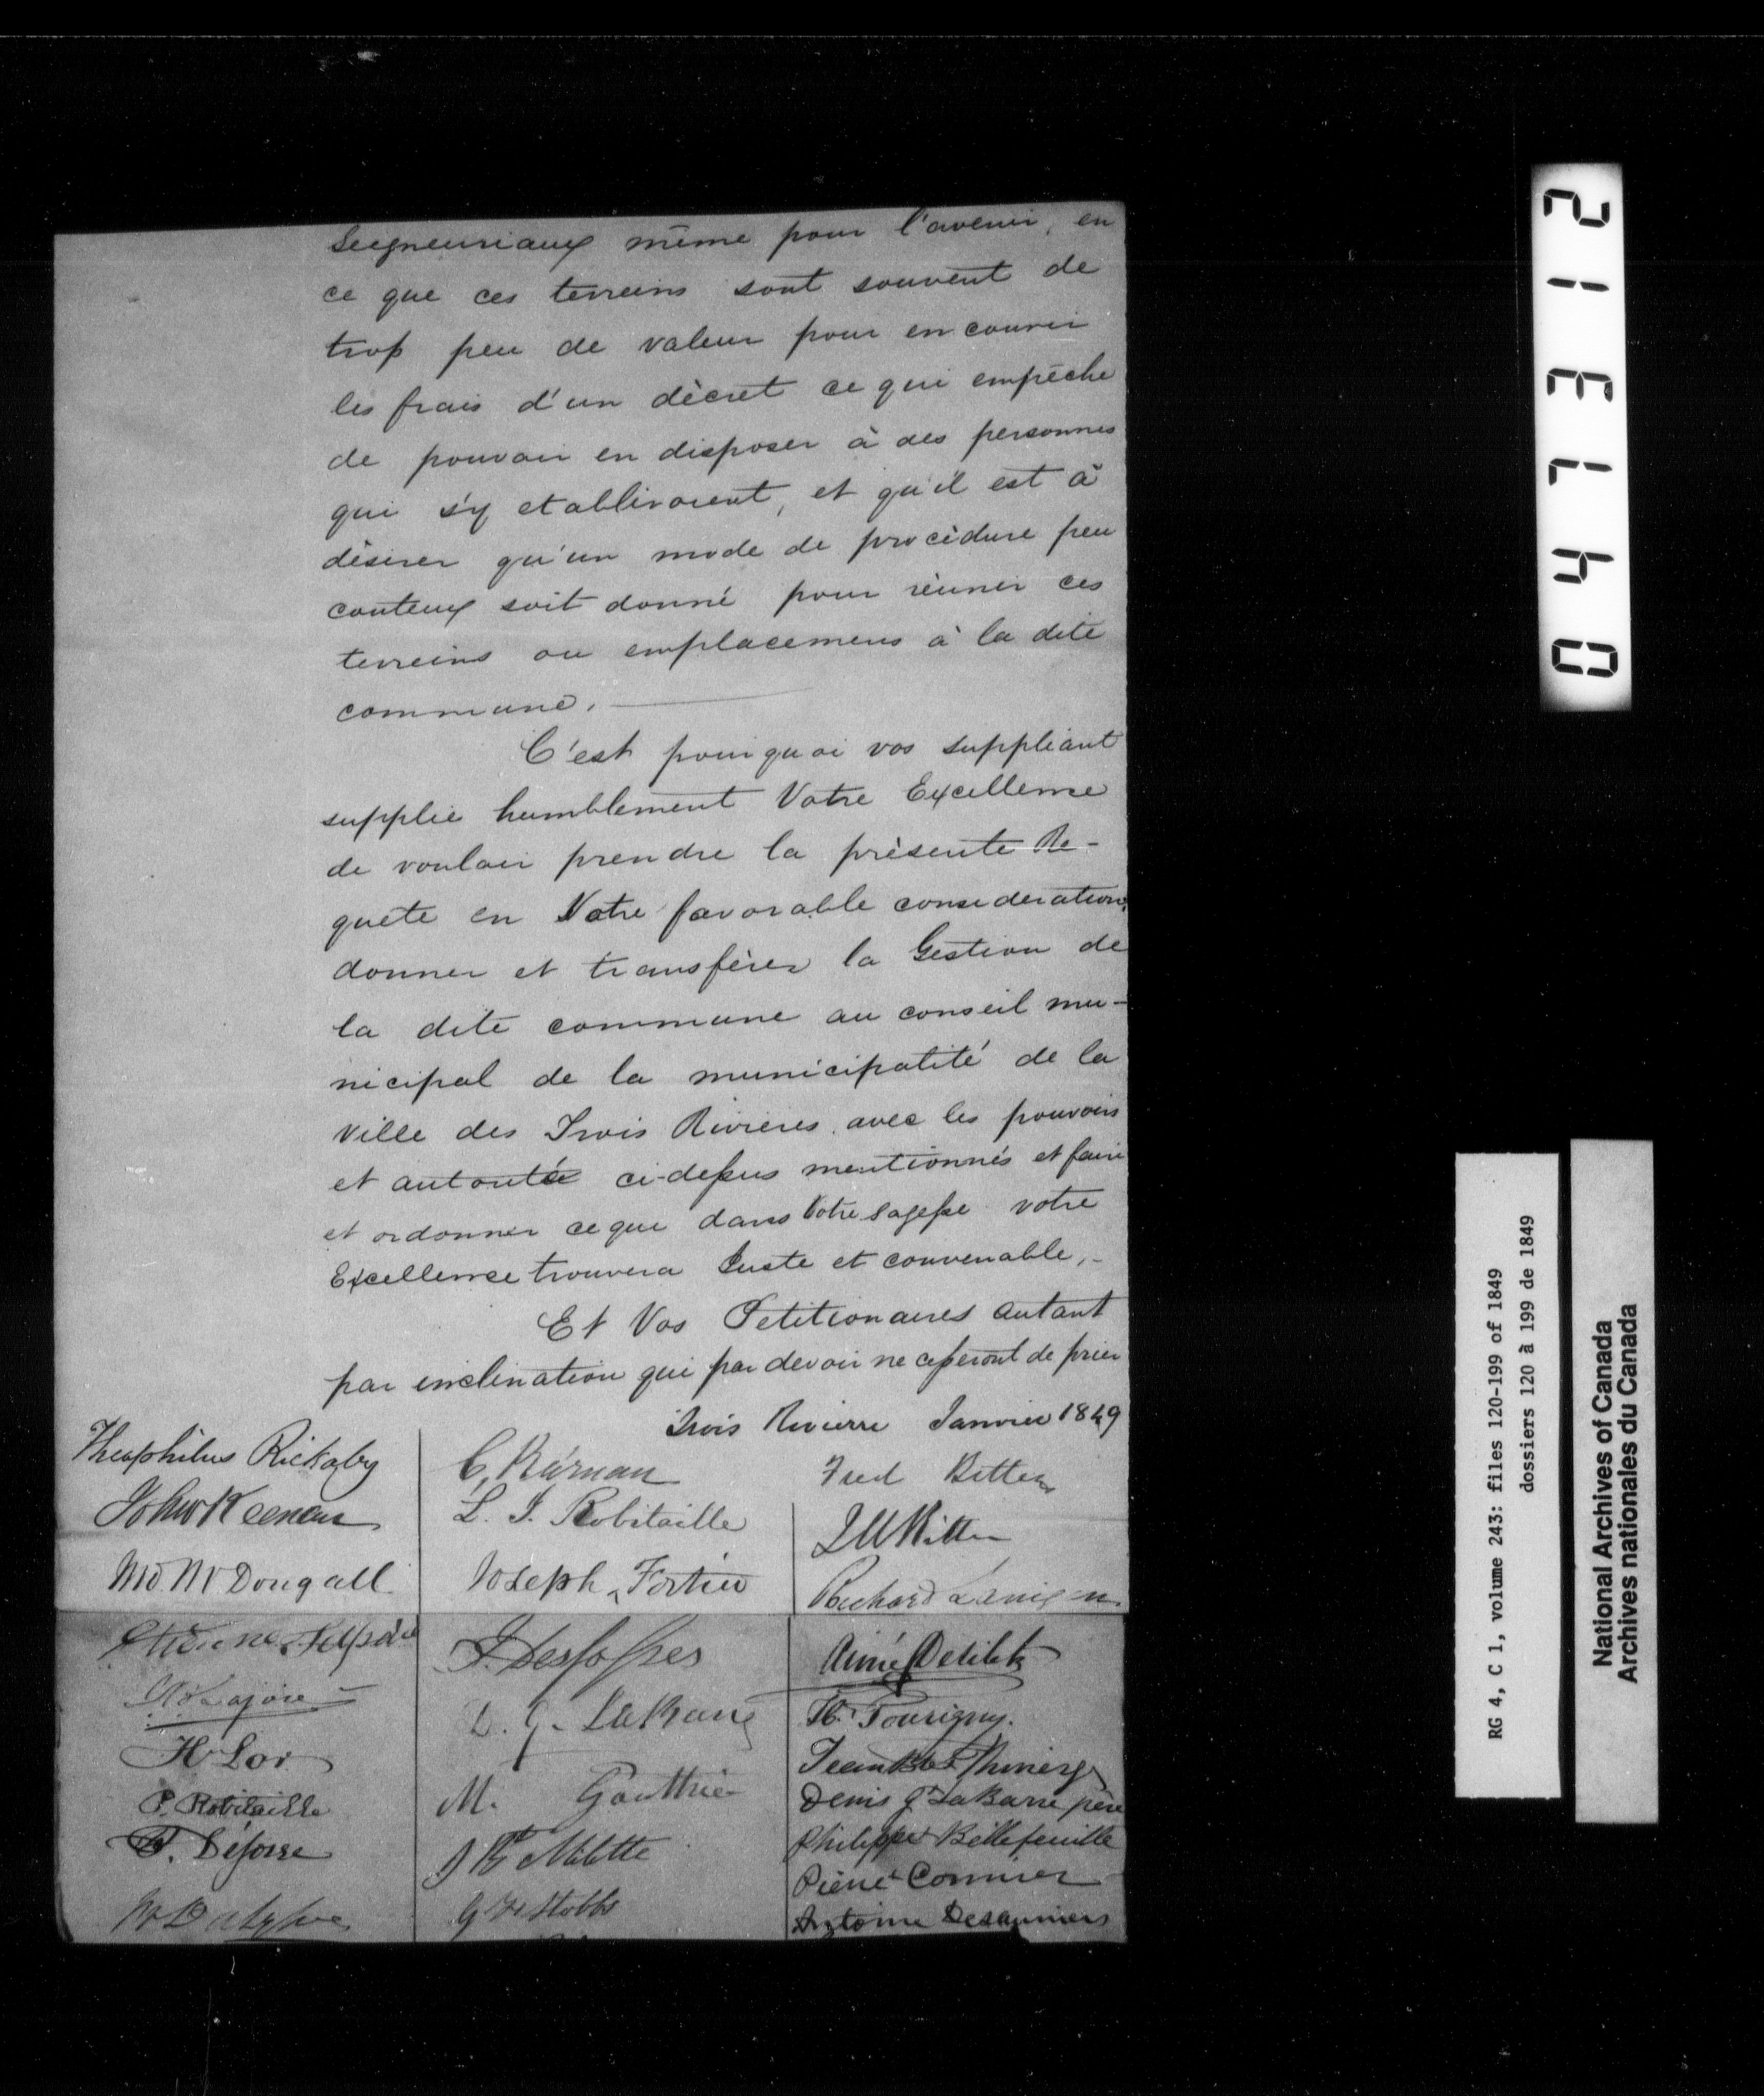 Seigneuriaux même pour l'avenir, en
ce que ces terreins sont souvent de
trop peu de valeur pour encourir
les frais d'un décret ce qui empêche
de pouvoir en disposer à des personnes
qui s'y etabliroient, et qu'il est à
désirer qu'un mode de procédure peu
couteux soit donné pour réunir ces
terreins ou emplacemens à la dite
commune.
C'est pourquoi vos suppliant
supplie humblement Votre Excellence
de vouloir prendre la présente Re-
quete en Votre favorable consideration,
donner et transférer la Gestion de
la dite commune au conseil mu-
nicipal de la municipalité de la
Ville des Trois Rivieres avec les pouvoirs
et autorités ci-dessus mentionnés et faire
et ordonner ce que dans Votre sagesse votre
Excellence trouvera Juste et convenable,-
Et Vos Petitionaires autant
par inclination que par devoir ne cesseront de prier
Trois Rivierre Janvier 1849
Theophilus Rickaby
John Keenan
McDougall
H Lor
P. Robitaille
L. I. Robitaille
Joseph Fortier
J. Desfosses
D. G. LaBarre
M. Gauthier
J Bte Milette
G Hobbs
Fred Ritter
Ritter
Richard Lanigan
Aimé Desilets
Tourigny.
Jean Bte
Denis G LaBarre père
Philippe Bellefeuille
Pierre Cormier
Antoine Desaumiers
04713 12
RG 4, C 1, volume 243: files 120-199 of 1849
dossiers 120 à 199 de 1849
National Archives of Canada
Archives nationales du Canada